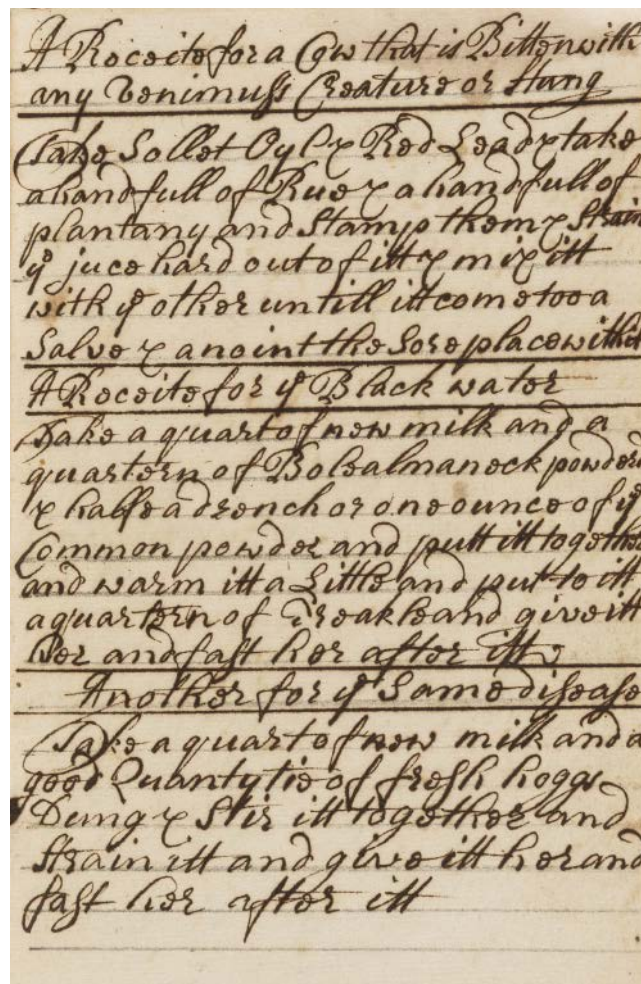 A Receite for a Cow that is Bitten with
any Venimuss Creature or stung
Take Sollet Oyl & Red Lead & take
a handfull of Rue & a handfull of
plantany and Stamp them & Strain
ye juce hard out of itt & mix itt
with ye other untill itt come too a
Salve & anoint the Sore place withit
A Receite for ye Black water
Take a quart of new milk and a
quartern of Bolealmaneck powderd
& halfe a drench or one ounce of ye
Common powder and putt itt together
and warm itt a Little and put to itt
a quartern of Treakle and give itt
her and fast her after itt
Another for ye Same disease
Take a quart of new milk and a
good Quantytie of fresh hoggs
Dung & Stir itt together and
Strain itt and give itt her and
fast her after itt